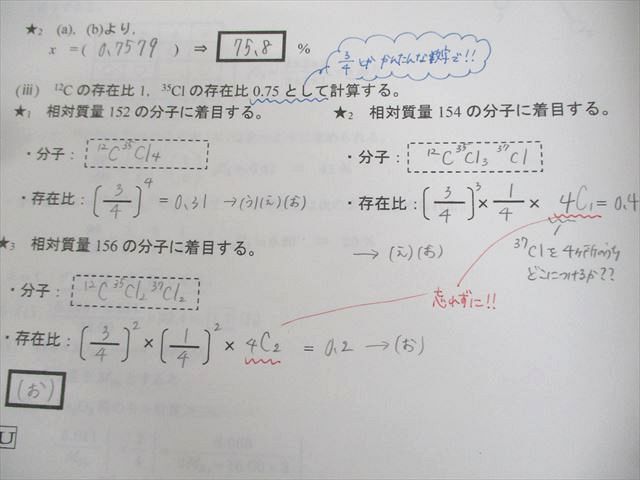 ★2 (a), (b)より,
x = ( 0.7579 ) ⇒ 75.8 %
3/4 とか かんたんな数字で!!
(iii) ¹²Cの存在比 1, ³⁵Clの存在比 0.75 として計算する。
★1 相対質量 152 の分子に着目する。
・分子: ¹²C³⁵Cl₄
・存在比: (3/4)⁴ = 0.31 →(う)(え)(お)
★2 相対質量 154 の分子に着目する。
・分子: ¹²C³⁵Cl₃ ³⁷Cl
・存在比: (3/4)³ × 1/4 × ₄C₁ = 0.4
→ (え)(お)
³⁷Clを4ヶ所のうち
どこにつけるか??
忘れずに!!
★3 相対質量 156 の分子に着目する。
・分子: ¹²C³⁵Cl₂³⁷Cl₂
・存在比: (3/4)² × (1/4)² × ₄C₂ = 0.2 → (お)
(お)
U